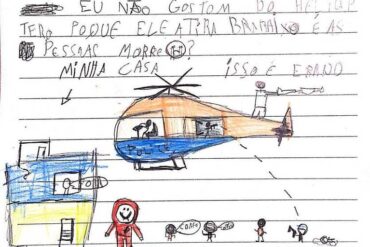 EU NÃO GOSTOM DO HELICOP
TERO POQUE ELE ATIRA BRABAIXO É AS
PESOAS MORRE
MINHA CASA ISSO É ERADO